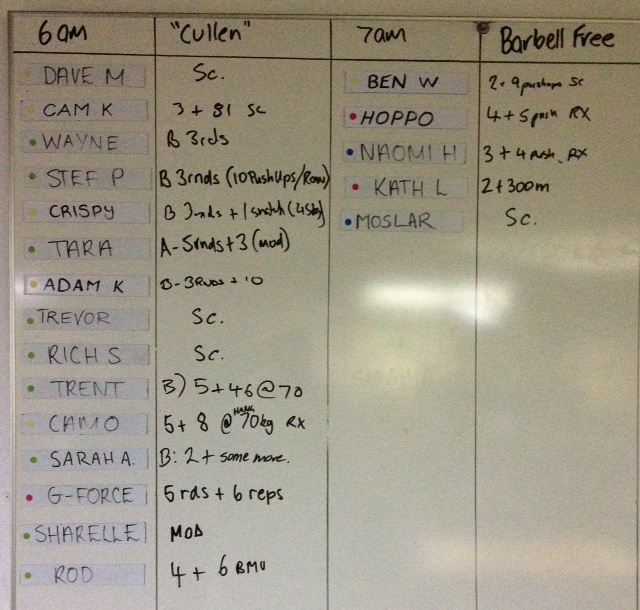 6am "Cullen" 7am Barbell Free
DAVE M Sc. BEN W 2+ 9 pushups Sc
CAM K 3 + 81 SC HOPPO 4 + 5 push RX
WAYNE B 3rds NAOMI H 3 + 4 push RX
STEF P B 3rnds (10 PushUps/Row) KATH L 2 + 300m
CRISPY B 3rnds + 1 snatch (45kg) MOSLAR Sc.
TARA A - 5rnds + 3 (mod)
ADAM K B - 3Rnds + 10
TREVOR Sc.
RICH S Sc.
TRENT B) 5 + 46 @ 70
CAM O 5 + 8 @ HANG 70kg RX
SARAH A. B: 2 + some more.
G-FORCE 5 rds + 6 reps
SHARELLE MOD
ROD 4 + 6 BMU